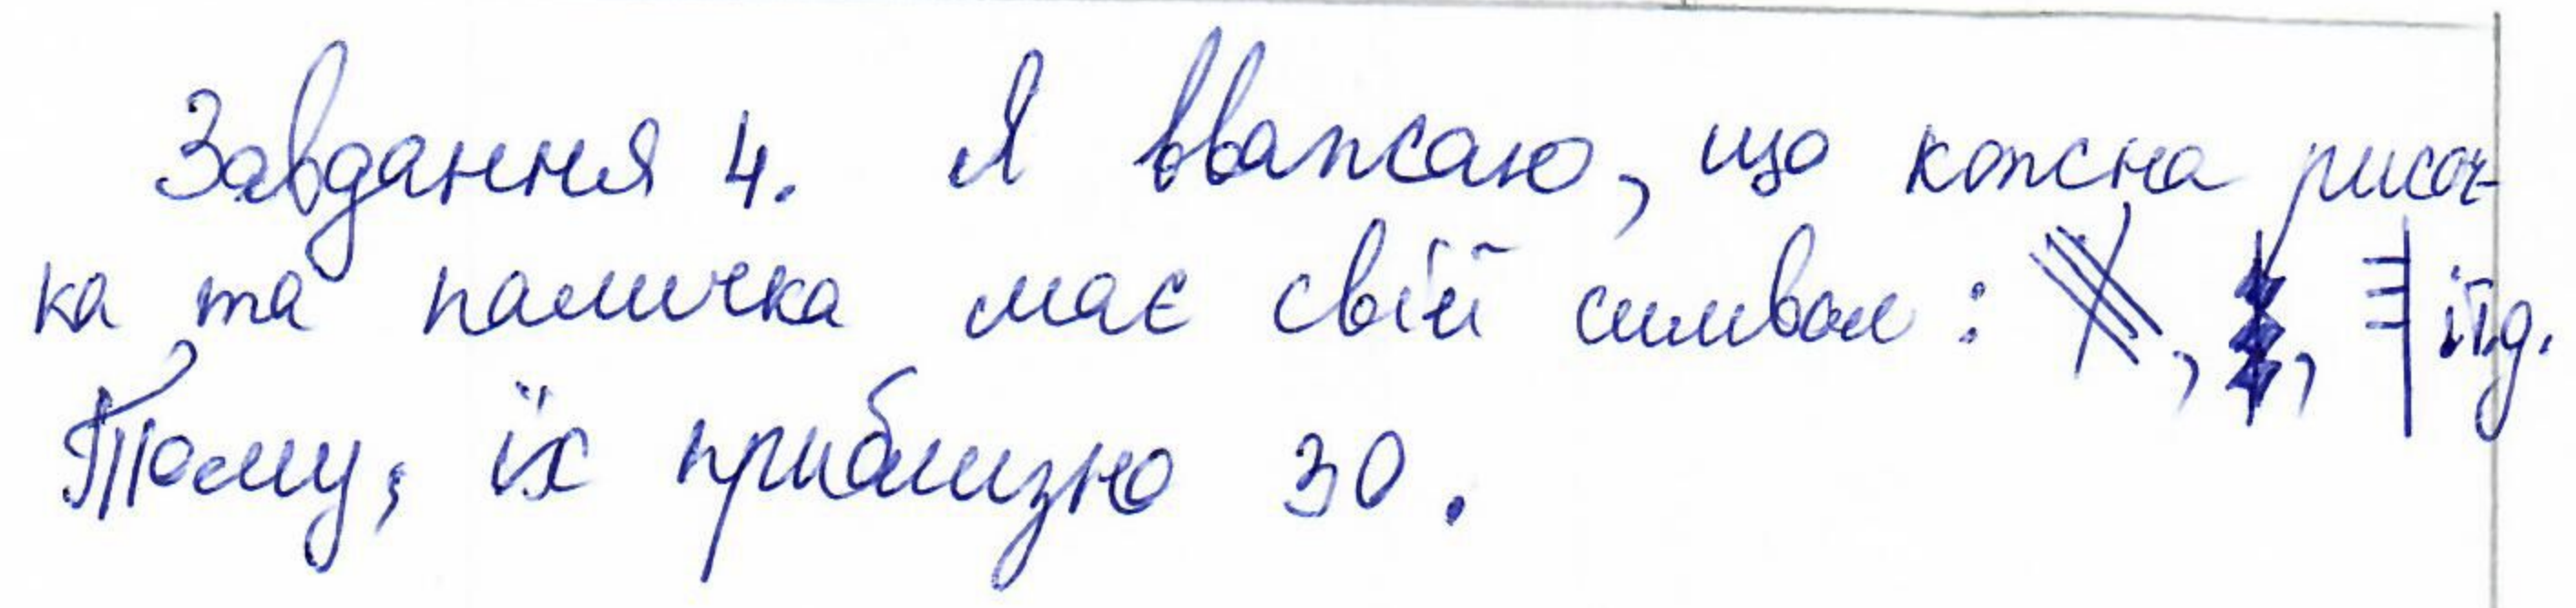 Завдання 4. Я вважаю, що кожна рисоч-
ка та паличка має свій символ: , , і т.д.
Тому, їх приблизно 30.